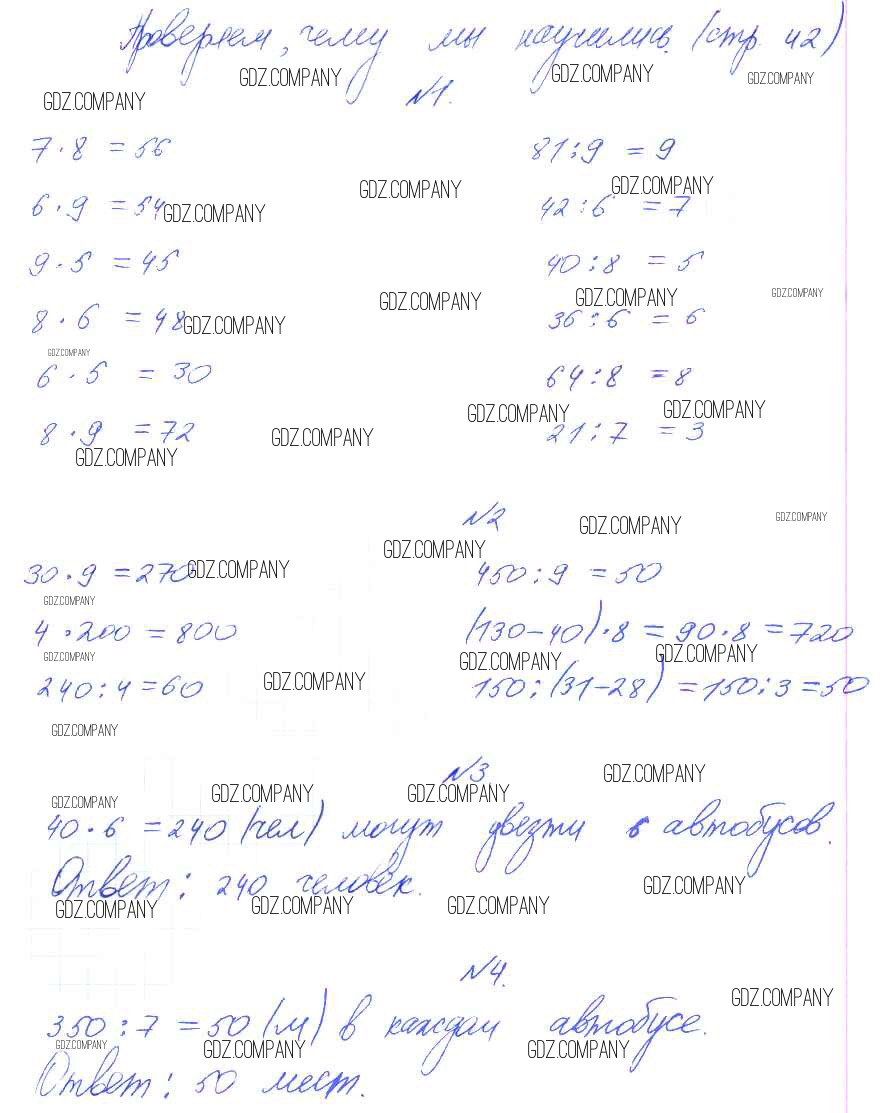 Проверяем, чему мы научились. (стр. 42)
GDZ.COMPANY GDZ.COMPANY GDZ.COMPANY
GDZ.COMPANY №1.
7·8 = 56 81:9 = 9
GDZ.COMPANY GDZ.COMPANY
6·9 = 54 GDZ.COMPANY 42:6 = 7
9·5 = 45 40:8 = 5
GDZ.COMPANY GDZ.COMPANY GDZ.COMPANY
8·6 = 48 GDZ.COMPANY 36:6 = 6
GDZ.COMPANY
6·5 = 30 64:8 = 8
GDZ.COMPANY GDZ.COMPANY
8·9 = 72 GDZ.COMPANY 21:7 = 3
GDZ.COMPANY
№2 GDZ.COMPANY GDZ.COMPANY
GDZ.COMPANY
30·9 = 270 GDZ.COMPANY 450:9 = 50
GDZ.COMPANY
4·200 = 800 (130-40)·8 = 90·8 = 720
GDZ.COMPANY GDZ.COMPANY GDZ.COMPANY
240:4 = 60 GDZ.COMPANY 150:(31-28) = 150:3 = 50
GDZ.COMPANY
№3 GDZ.COMPANY
GDZ.COMPANY GDZ.COMPANY GDZ.COMPANY
40·6 = 240 (чел) могут увезти 6 автобусов.
Ответ: 240 человек. GDZ.COMPANY
GDZ.COMPANY GDZ.COMPANY GDZ.COMPANY
№4.
GDZ.COMPANY
350:7 = 50 (м) в каждом автобусе.
GDZ.COMPANY GDZ.COMPANY GDZ.COMPANY
Ответ: 50 мест.